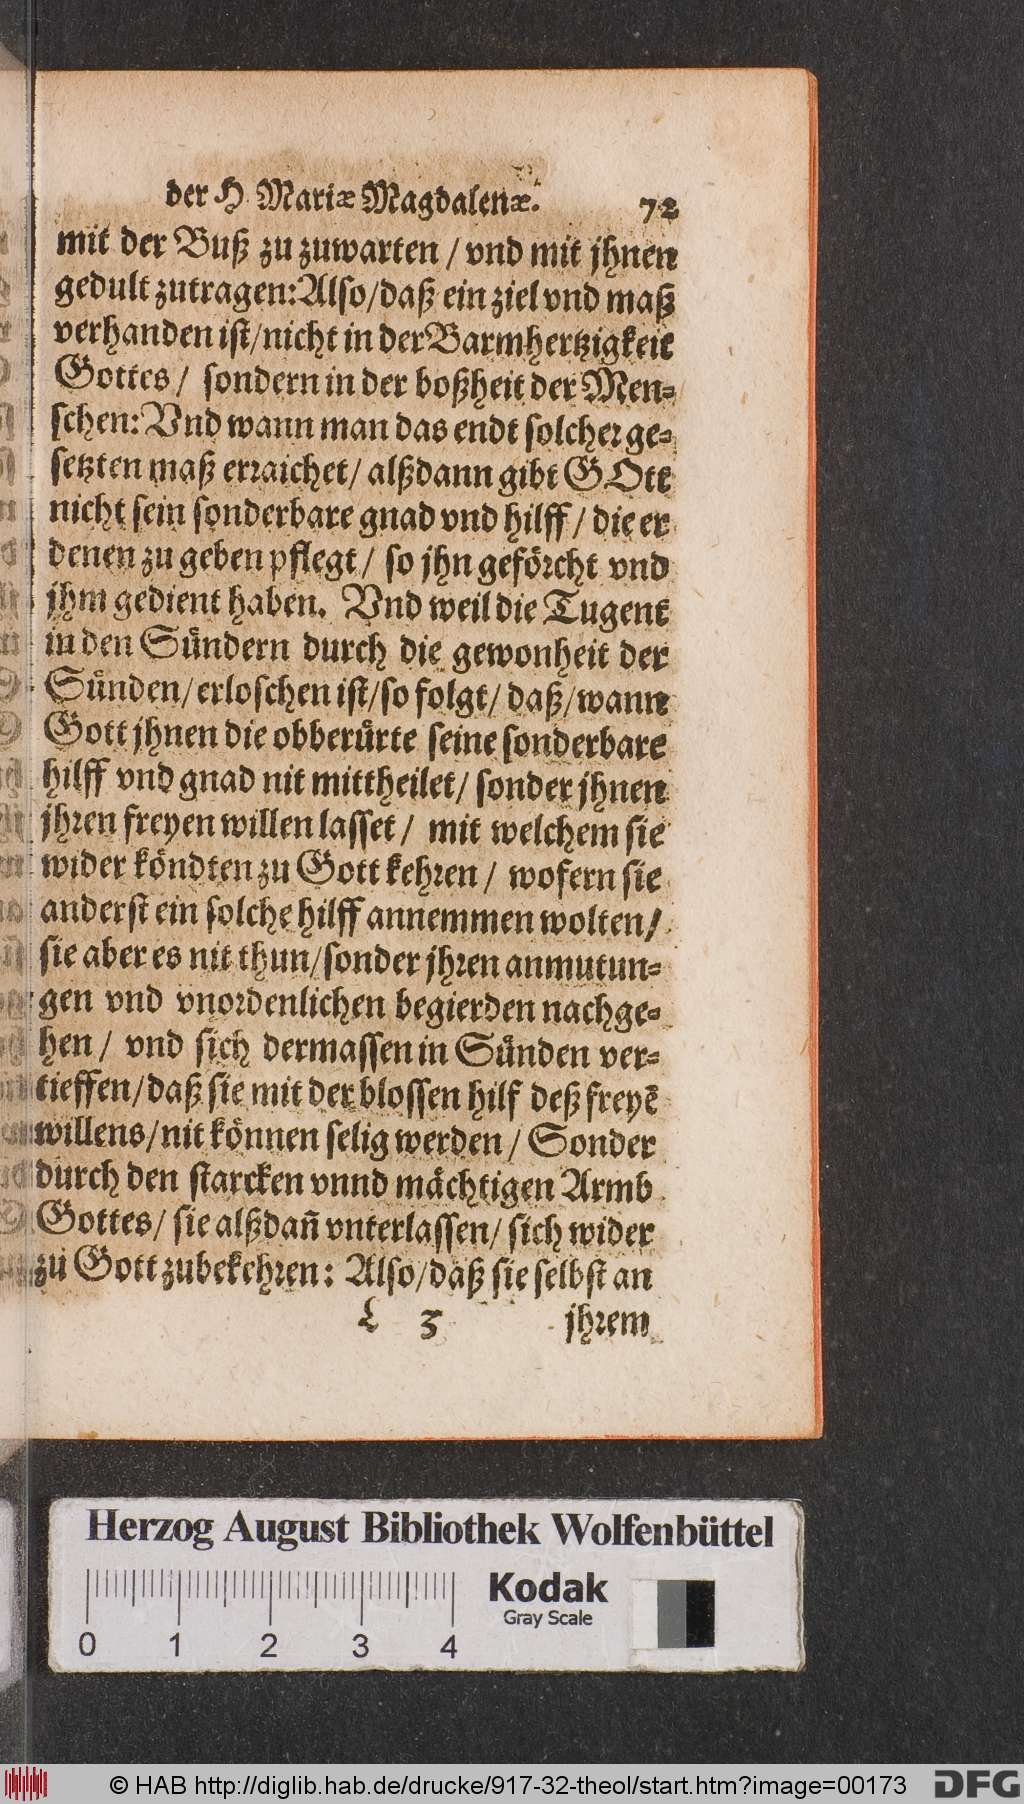 der H Mariæ Magdalenæ. 72
mit der Buß zu zuwarten / vnd mit jhnen
gedult zutragen: Also/daß ein ziel vnd maß
verhanden ist/nicht in der Barmhertzigkeit
Gottes / sondern in der boßheit der Men-
schen: Vnd wann man das endt solcher ge-
setzten maß erraichet/ alßdann gibt GOtt
nicht sein sonderbare gnad vnd hilff / die er
denen zu geben pflegt / so jhn geförcht vnd
jhm gedient haben. Vnd weil die Tugent
in den Sündern durch die gewonheit der
Sünden/erloschen ist/so folgt/ daß/wann
Gott jhnen die obberürte seine sonderbare
hilff vnd gnad nit mittheilet/ sonder jhnen
jhren freyen willen lasset / mit welchem sie
wider köndten zu Gott kehren / wofern sie
anderst ein solche hilff annemmen wolten/
sie aber es nit thun/sonder jhren anmutun-
gen vnd vnordenlichen begierden nachge-
hen / vnd sich dermassen in Sünden ver-
tieffen/daß sie mit der blossen hilf deß freyẽ
willens/nit können selig werden / Sonder
durch den starcken vnnd mächtigen Armb
Gottes/ sie alßdañ vnterlassen/ sich wider
zu Gott zubekehren: Also/daß sie selbst an
L 3 jhrem
Herzog August Bibliothek Wolfenbüttel
Kodak
Gray Scale
0 1 2 3 4
© HAB http://diglib.hab.de/drucke/917-32-theol/start.htm?image=00173 DFG